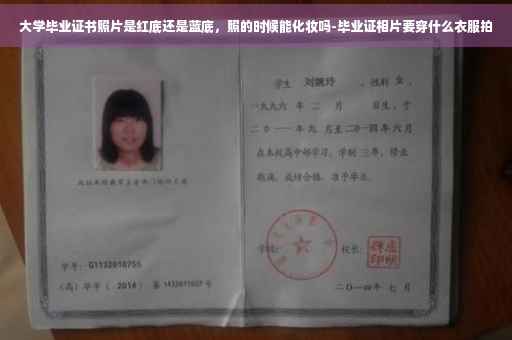 大学毕业证书照片是红底还是蓝底，照的时候能化妆吗-毕业证相片要穿什么衣服拍
学生 刘婉玲 ，性别 女 ，
一九九六 年 二 月 日生，于
二〇一一年九 月至二〇一四年六月
在本校高中部学习，学制 三年，修业
期满，成绩合格，准予毕业。
学校： 校长：
学号：G1132010755
（高）毕字（ 2014 ）第 1432011027 号
二〇一四年 七 月